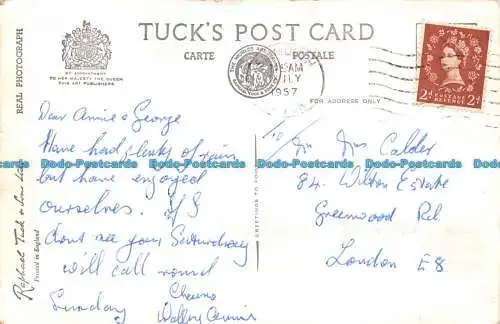 TUCK'S POST CARD
CARTE POSTALE
REAL PHOTOGRAPH
BY APPOINTMENT
TO HER MAJESTY THE QUEEN
FINE ART PUBLISHERS
AM
JLY
1957
2D POSTAGE REVENUE 2D
FOR ADDRESS ONLY
Dear Annie & George
Have had plenty of rain
but have enjoyed
ourselves. I/S
dont see you Saturday
will call round
Sunday Cheerio
Wally
Mr Mrs Calder
84 Wilton Estate
Greenwood Rd
London E8
GREETINGS TO YOU
Raphael Tuck & Sons Ltd
Printed in England
Dodo-Postcards Dodo-Postcards Dodo-Postcards Dodo-Postcards